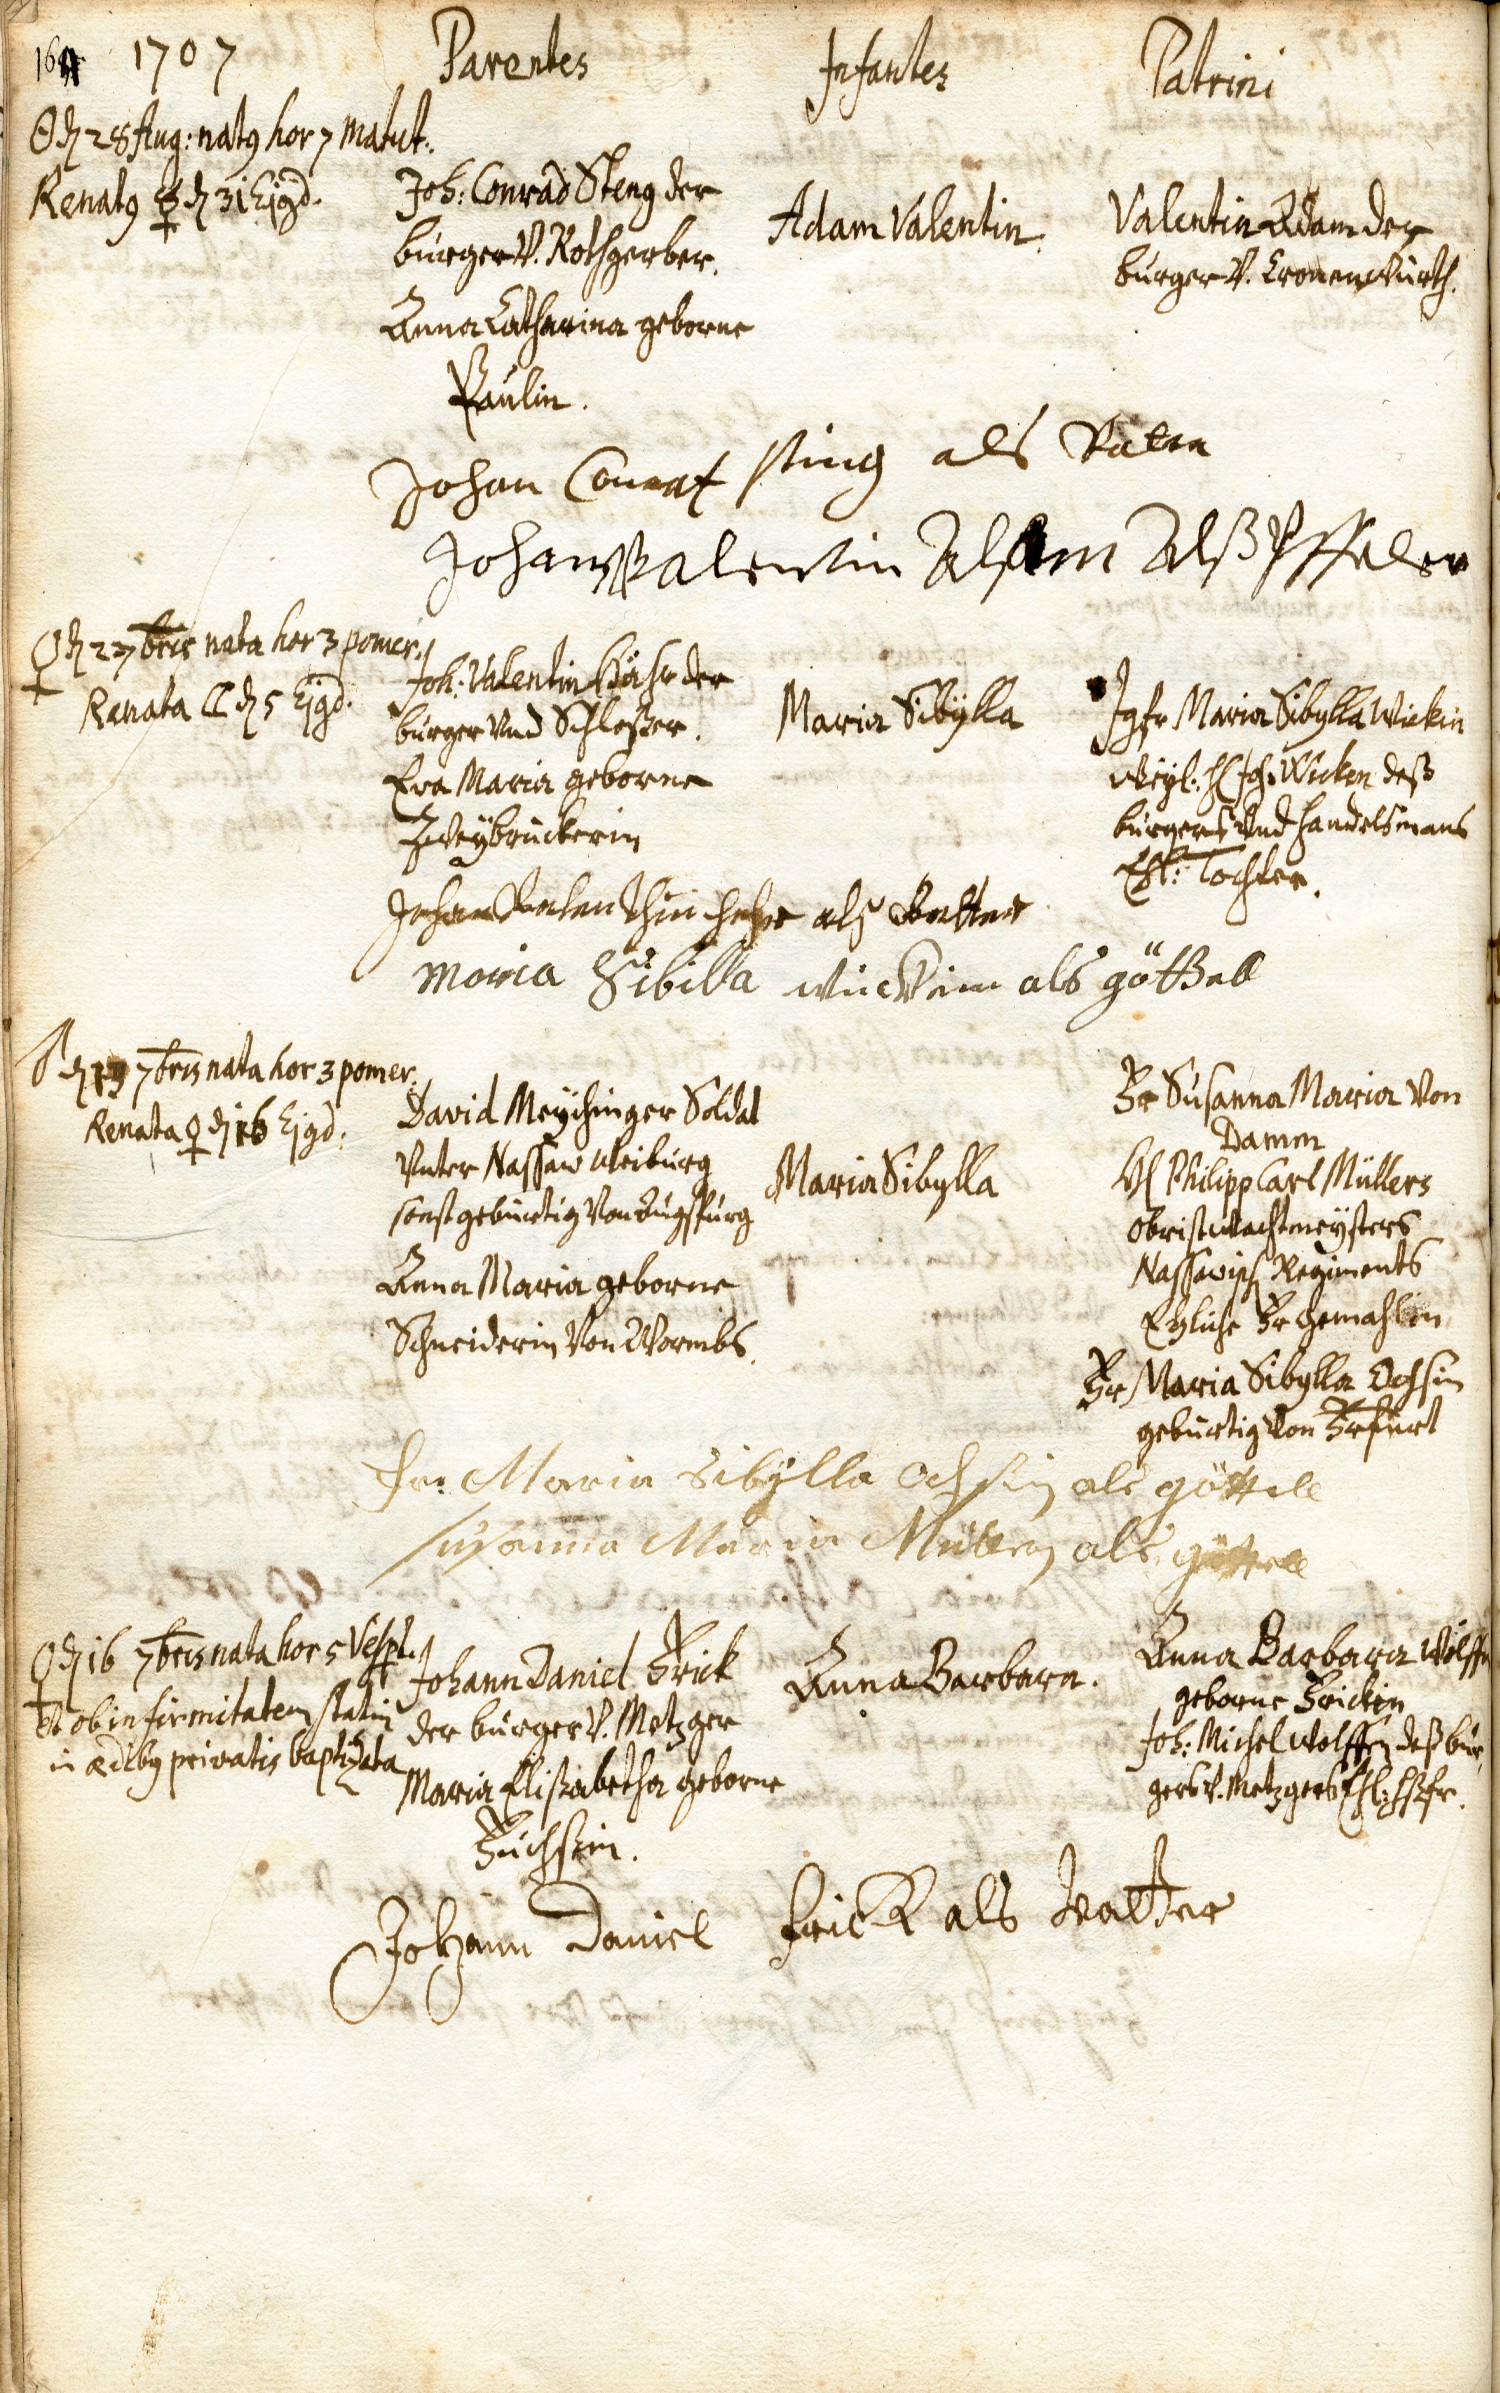 1707
Parentes
Infantes
Patrini
☉ d 28 Aug: natg hor 7 matut.
Renatg ☿ d 31 Ejgd.
Joh: Conrad Steng der
burger V. Rothgerber.
Anna Catharina geborne
Paulin.
Adam Valentin.
Valentin Adam der
burger V. Cronenwürth.
Johan Conrat sting als Vater
Johan Valentin Adam Alß Pffetter
♀ d 2 7bris nata hor 3 pomer.
Renata ☾ d 5 Ejgd.
Joh: Valentin der
burger Vnd Schloßer.
Eva Maria geborne
Zweybrückerin
Maria Sibÿlla
Jgfr Maria Sibylla Wickin
Weyl: H Joh: Wicken deß
burgers Vnd handelsmans
Ehl: Tochter.
Johan Valenthin als Vatter
maria Sibilla wickin als göttel
♂ d 13 7bris nata hor 3 pomer.
Renata ♀ d 16 Ejgd:
David Meychinger Soldat
Vnter Nassaw Weilburg
sonst gebürtig Von Augspurg
Anna Maria geborne
Schneiderin Von Wormbs.
Maria Sibylla
Fr Susanna Maria Von
Damm
H Philipp Carl Müllers
obristwachtmeysters
Nassawisch Regiments
Ehliche Fr Gemahlin
Fr Maria Sibylla Ochsin
gebürtig Von
fr: Maria Sibylla Ochsin als göttel
susanna Maria Müllerin als göttel
♀ d 16 7bris nata hor 5 Vespt.
et ob infirmitatem statim
in ædibg privatis baptizata
Johann Daniel Frick
der burger V. Metzger
Maria Elisabetha geborne
Fuchsin.
Anna Barbara.
Anna Barbara Wolffin
geborne Frickin
Joh: Michel Wolffen deß bur
gers V. Metzgers Ehl: Hßfr.
Johann Daniel frick als Vatter